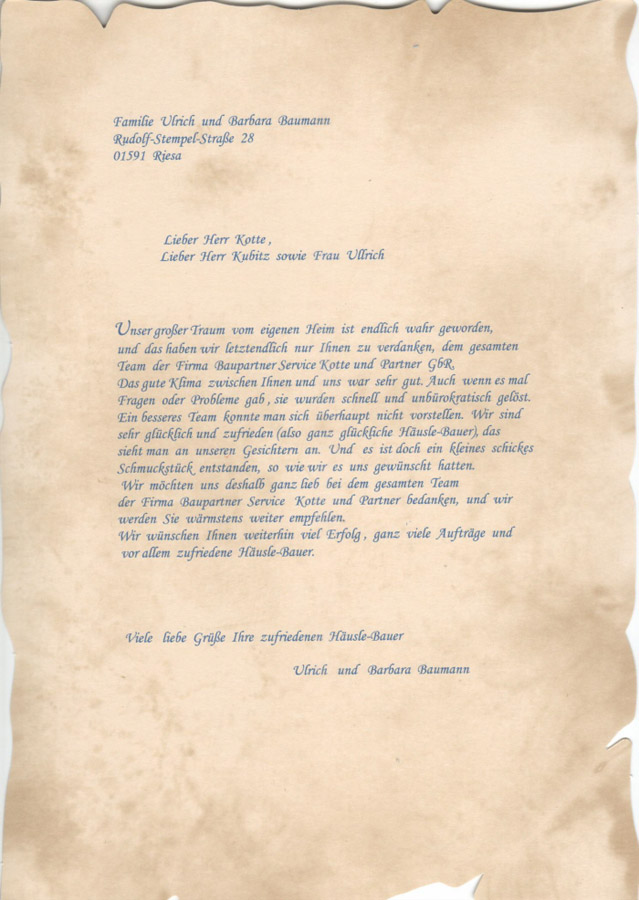 Familie Ulrich und Barbara Baumann
Rudolf-Stempel-Straße 28
01591 Riesa
Lieber Herr Kotte,
Lieber Herr Kubitz sowie Frau Ullrich
Unser großer Traum vom eigenen Heim ist endlich wahr geworden,
und das haben wir letztendlich nur Ihnen zu verdanken, dem gesamten
Team der Firma Baupartner Service Kotte und Partner GbR.
Das gute Klima zwischen Ihnen und uns war sehr gut. Auch wenn es mal
Fragen oder Probleme gab, sie wurden schnell und unbürokratisch gelöst.
Ein besseres Team konnte man sich überhaupt nicht vorstellen. Wir sind
sehr glücklich und zufrieden (also ganz glückliche Häusle-Bauer), das
sieht man an unseren Gesichtern an. Und es ist doch ein kleines schickes
Schmuckstück entstanden, so wie wir es uns gewünscht hatten.
Wir möchten uns deshalb ganz lieb bei dem gesamten Team
der Firma Baupartner Service Kotte und Partner bedanken, und wir
werden Sie wärmstens weiter empfehlen.
Wir wünschen Ihnen weiterhin viel Erfolg, ganz viele Aufträge und
vor allem zufriedene Häusle-Bauer.
Viele liebe Grüße Ihre zufriedenen Häusle-Bauer
Ulrich und Barbara Baumann